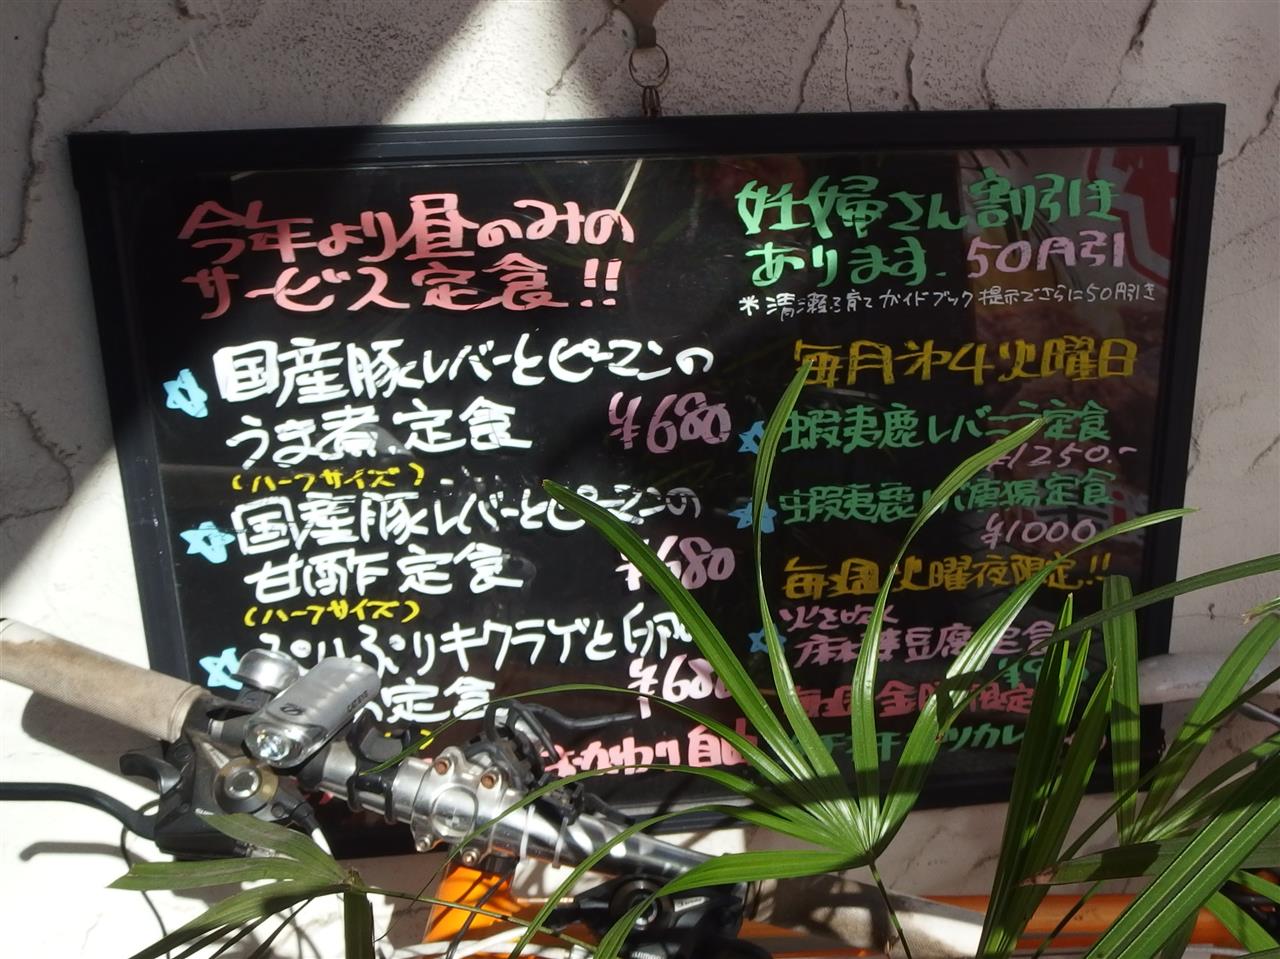 今年より昼のみの
サービス定食!!
国産豚レバーとピーマンの
うま煮定食 ¥680
(ハーフサイズ)
国産豚レバーとピーマンの
甘酢定食 ¥680
(ハーフサイズ)
ぷりぷりキクラゲと卵
定食 ¥680
おかわり自由
妊婦さん割引き
あります。50円引
※清瀬子育てガイドブック提示でさらに50円引き
毎月第4火曜日
蝦夷鹿レバニラ定食
¥1250.-
蝦夷鹿 定食
¥1000
毎週火曜夜限定!!
火を吹く
麻婆豆腐定食
毎週金曜限定
カツカレ